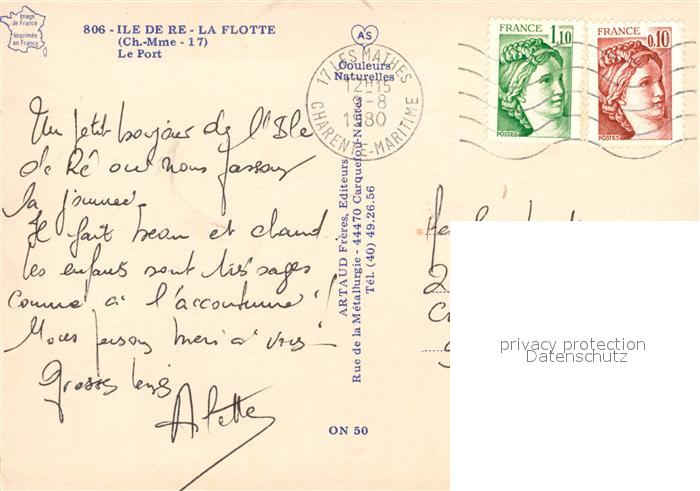 Image
de France
Imprimée
en France
806 - ILE DE RE - LA FLOTTE
(Ch.-Mme - 17)
Le Port
AS
Couleurs
Naturelles
17 LES MATHES
12H15
-8
1980
CHARENTE-MARITIME
FRANCE
1,10
POSTES
FRANCE
0,10
POSTES
Un petit bonjour de l'Ile
de Ré où nous passons
la journée.
Il fait beau et chaud.
Les enfants sont très sages
comme à l'accoutumée !
Nous pensons bien à vous
Grosses bises
Arlette
ARTAUD Frères, Editeurs
Rue de la Métallurgie - 44470 Carquefou-Nantes
Tél. (40) 49.26.56
ON 50
privacy protection
Datenschutz